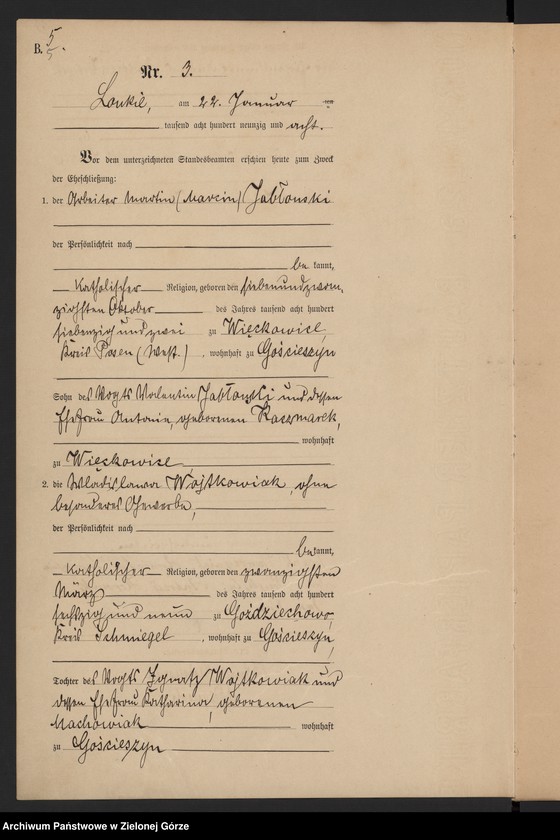 B. 5/5.
Nr. 3.
Lonkie, am 22. Januar
tausend acht hundert neunzig und acht.
Vor dem unterzeichneten Standesbeamten erschien heute zum Zweck
der Eheschließung:
1. der Arbeiter Martin (Marcin) Jabłonski
der Persönlichkeit nach
be kannt,
Katholischer Religion, geboren den siebenundzwan-
zigsten Oktober des Jahres tausend acht hundert
siebenzig und zwei zu Więckowice,
Kreis Posen (West.) , wohnhaft zu Gościeszyn
Sohn des Vogts Valentin Jabłonski und dessen
Ehefrau Antonie, geborenen Kaczmarek,
wohnhaft
zu Więckowice
2. die Wladislawa Wojtkowiak, ohne
besonderes Gewerbe,
der Persönlichkeit nach
bekannt,
Katholischer Religion, geboren den zwanzigsten
März des Jahres tausend acht hundert
sechszig und neun zu Goździechowo,
Kreis Schmiegel , wohnhaft zu Gościeszyn,
Tochter des Vogts Ignatz Wojtkowiak und
dessen Ehefrau Katharina, geborenen
Machowiak wohnhaft
zu Gościeszyn
Archiwum Państwowe w Zielonej Górze